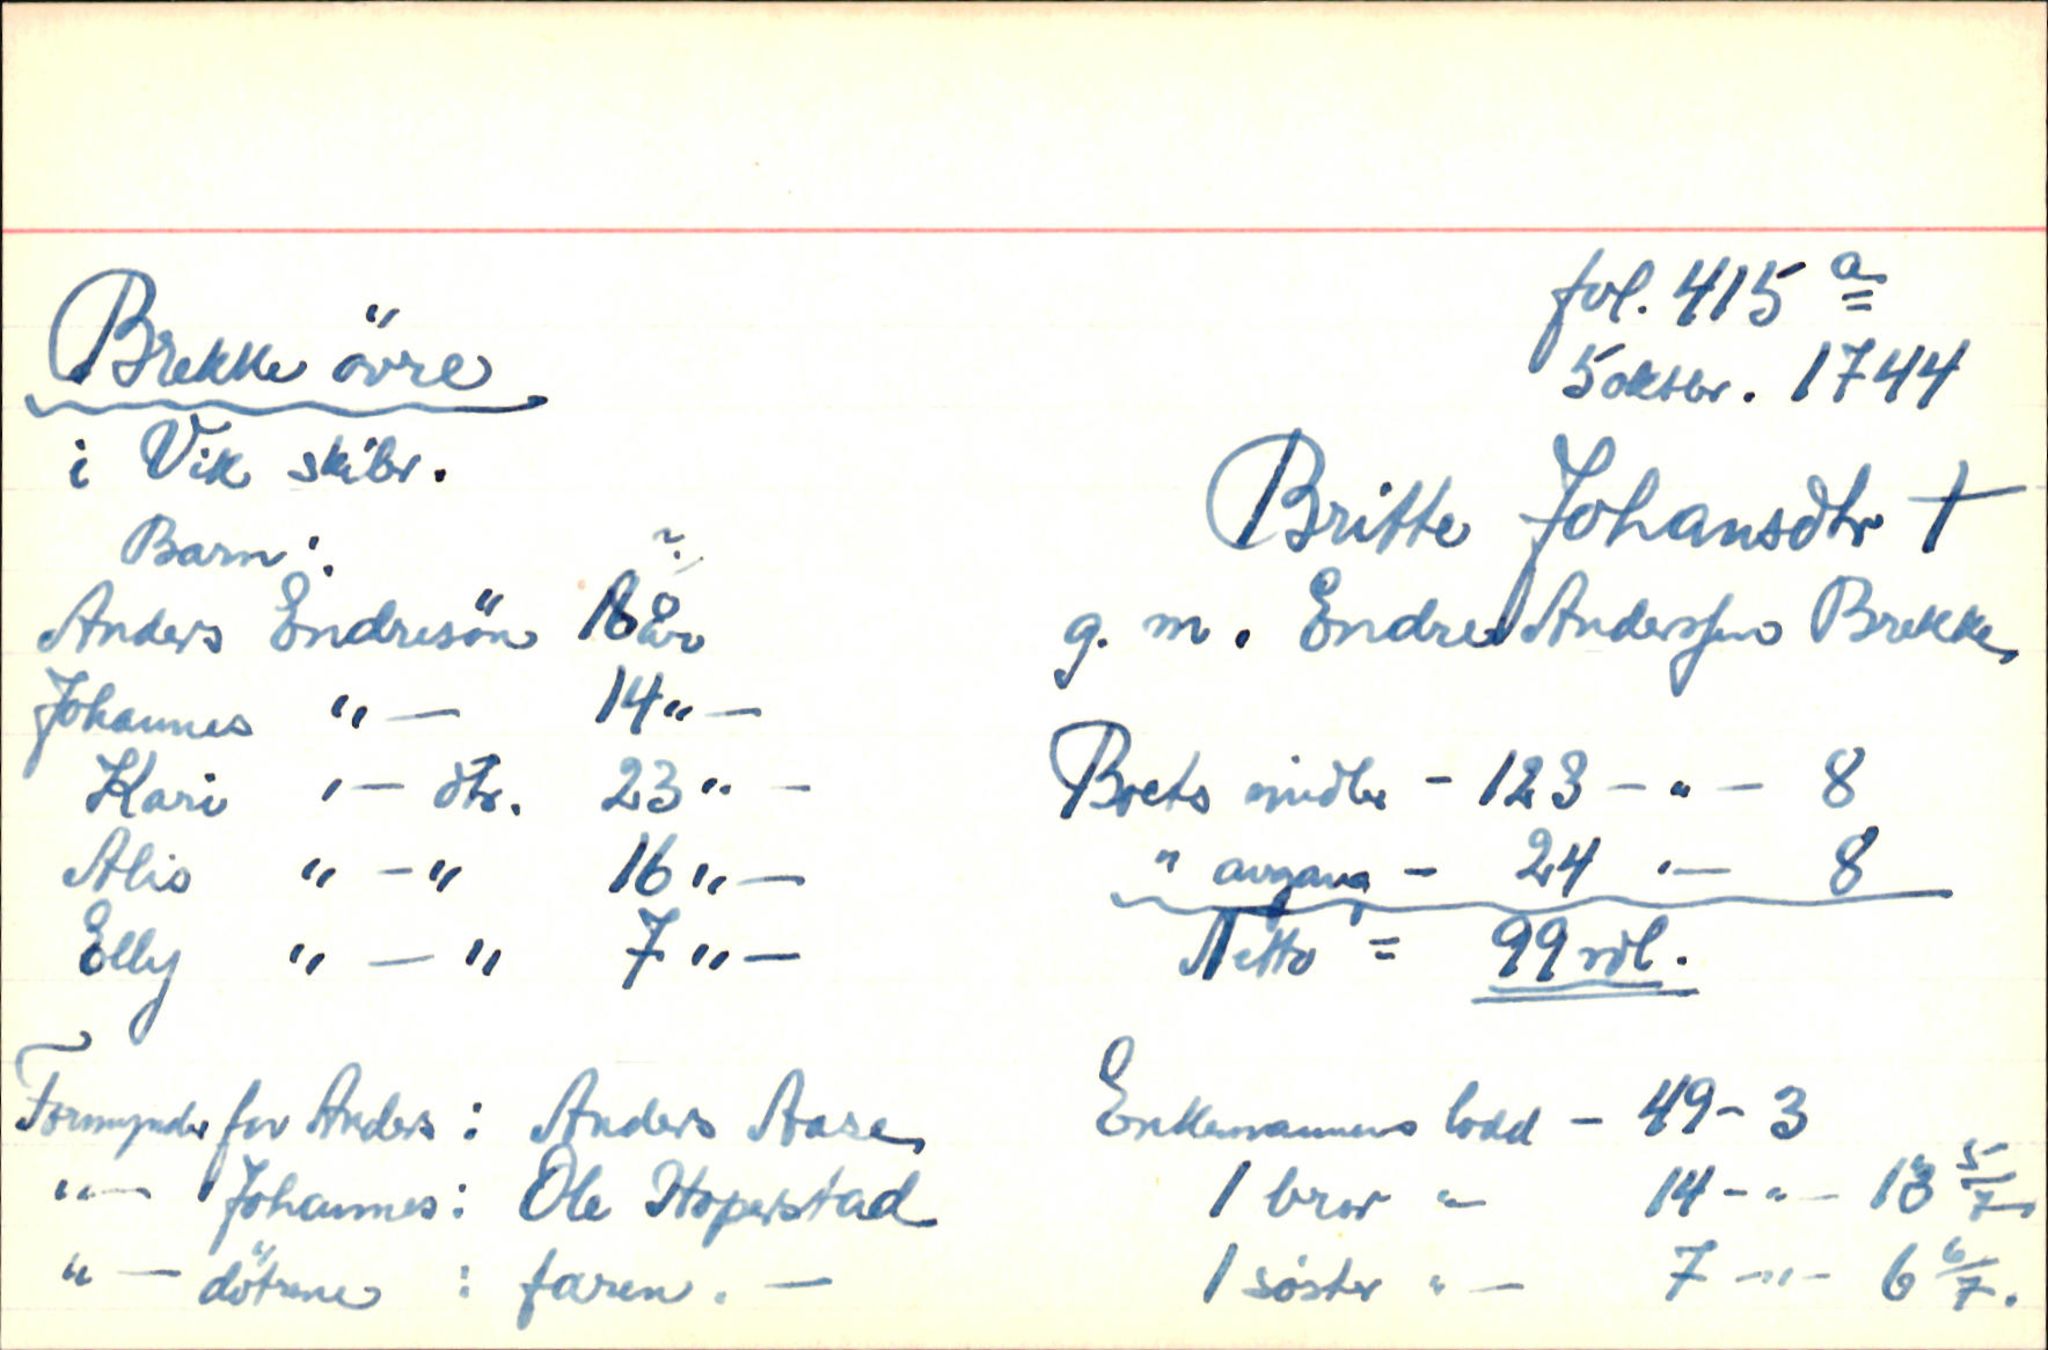 Brekke övre
i Vik skibr.
Barn:
Anders Endresön 18 år
Johannes "— 14 "—
Kari "— dtr. 23 "—
Alis " —" 16 "—
Elly " — " 7 "—
Formynder for Anders: Anders Aase,
"— Johannes: Ole Hoperstad
"— dötrene : faren. —
fol. 415 a
5 oktbr. 1744
Britte Johansdtr †
g. m. Endre Anderssen Brekke,
Boets midler - 123 — " — 8
" avgang - 24 "— 8
Netto = 99 rdl.
Enkemannens lodd — 49 - 3
1 bror "— 14 - " — 13 5/7
1 söster " — 7 — " — 6 6/7.